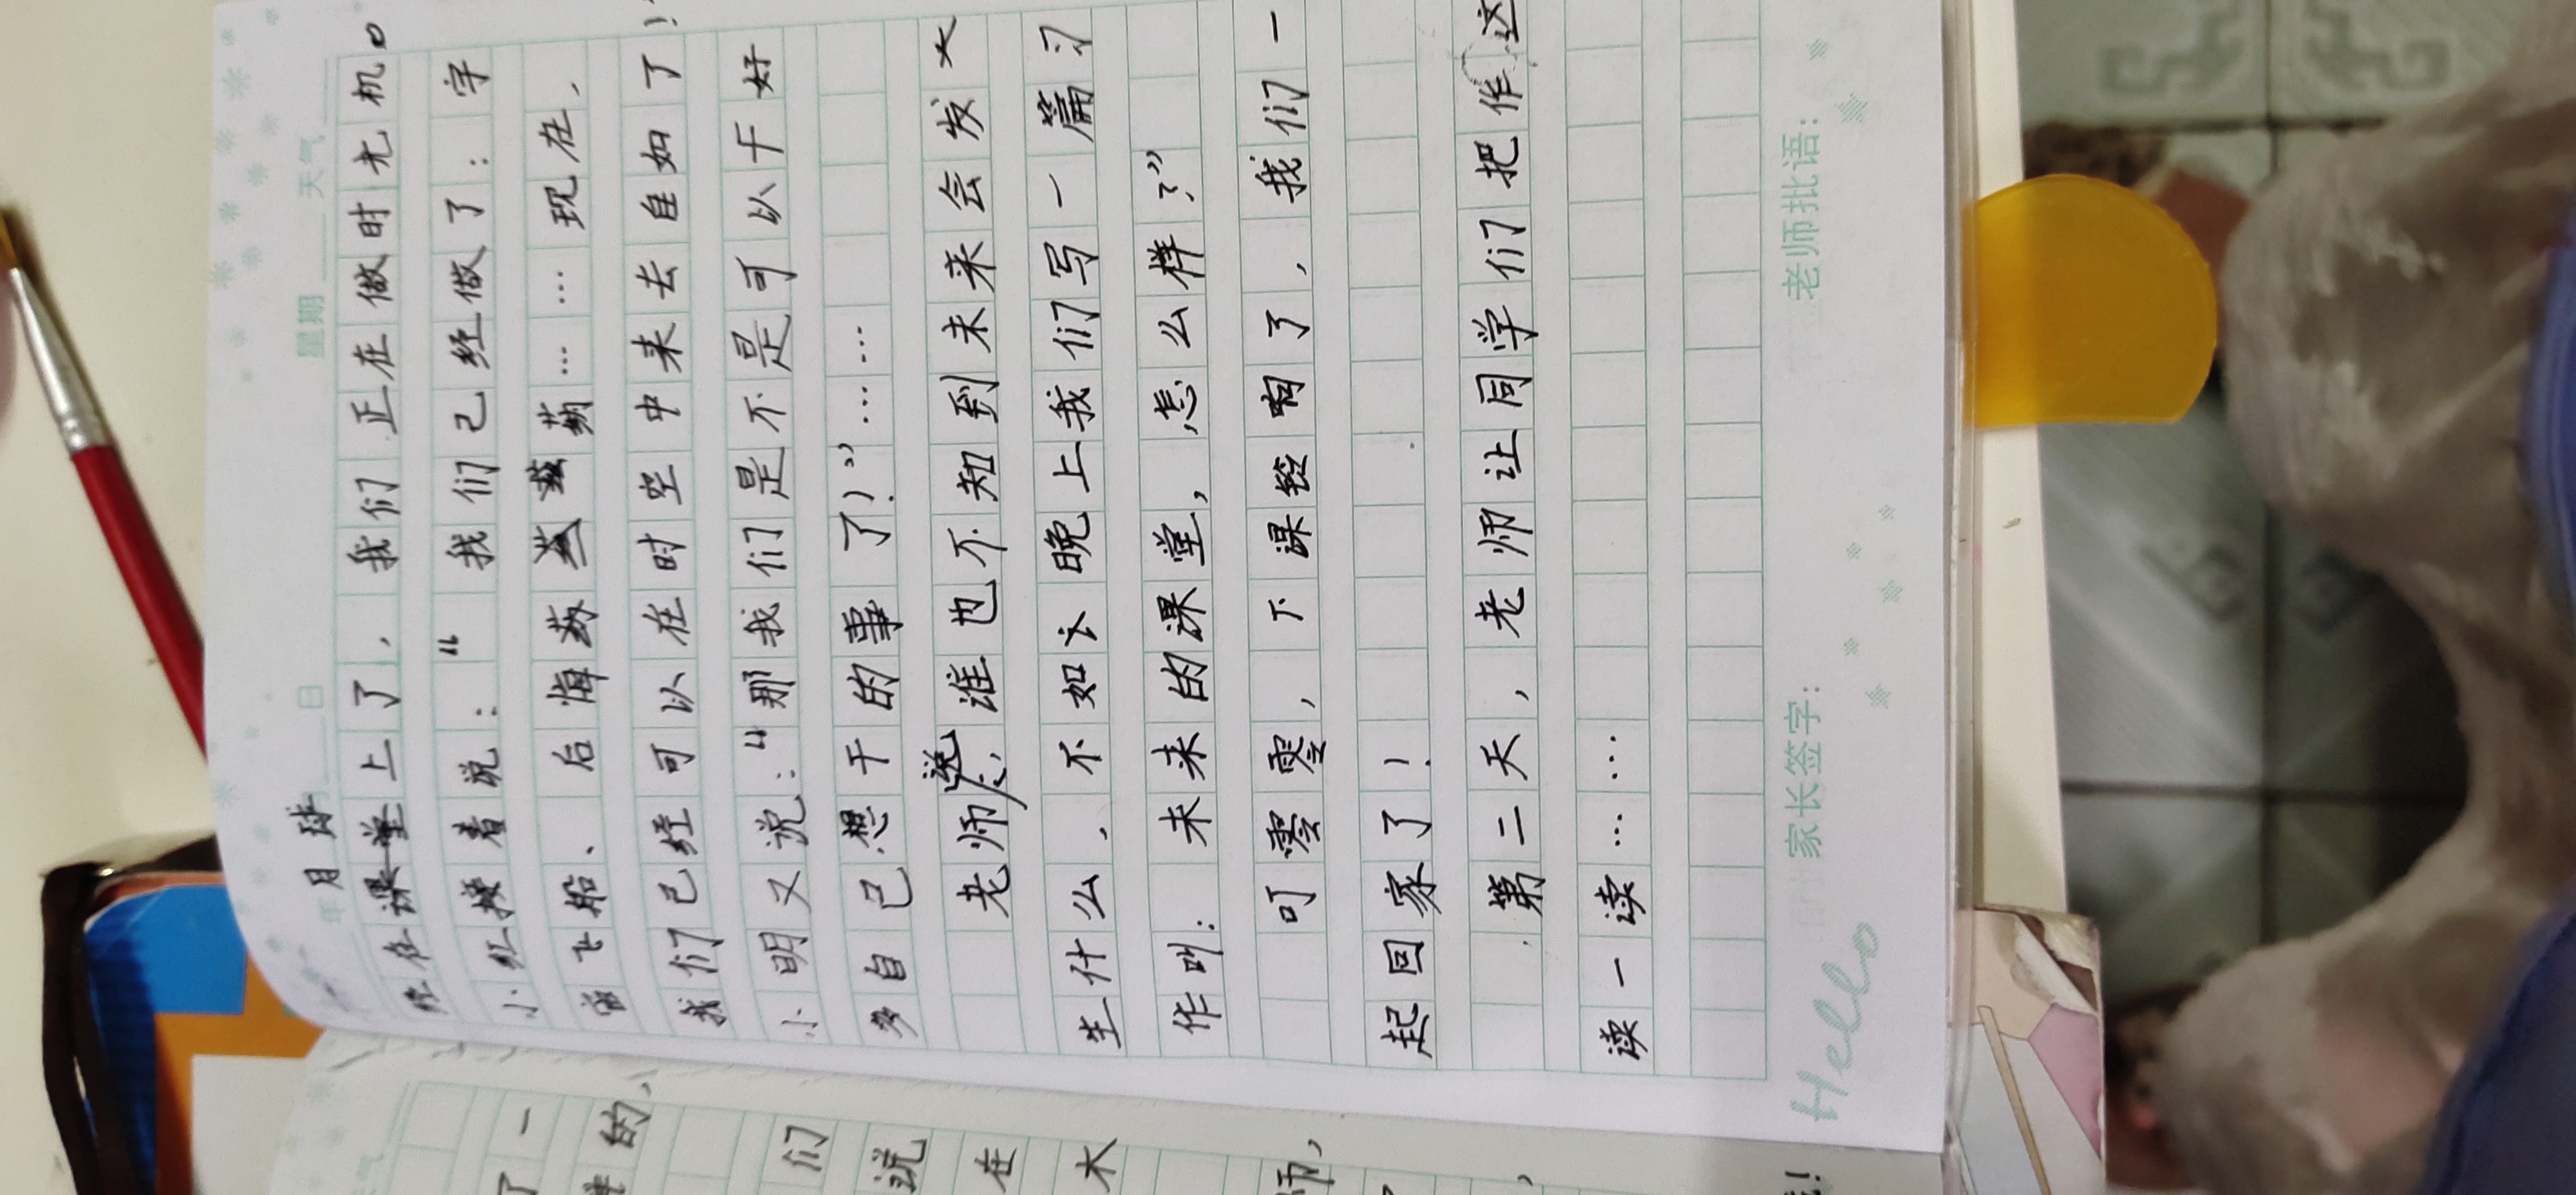 年 月 日 星期 天气
月球
经在课堂上了，我们正在做时光机。
小红接着说：“我们已经做了：宇
宙飞船、后悔药……现在，
我们已经可以在时空中来去自如了！
小明又说：“那我们是不是可以干好
多自己想干的事了！”……
老师说，谁也不知到未来会发
生什么，不如今晚上我们写一篇习
作叫：未来的课堂，怎么样？”
叮零零，下课铃响了，我们一
起回家了！
第二天，老师让同学们把作这
读一读……
家长签字： 老师批语：
Hello
了一
的，
们
说
在
木
师，